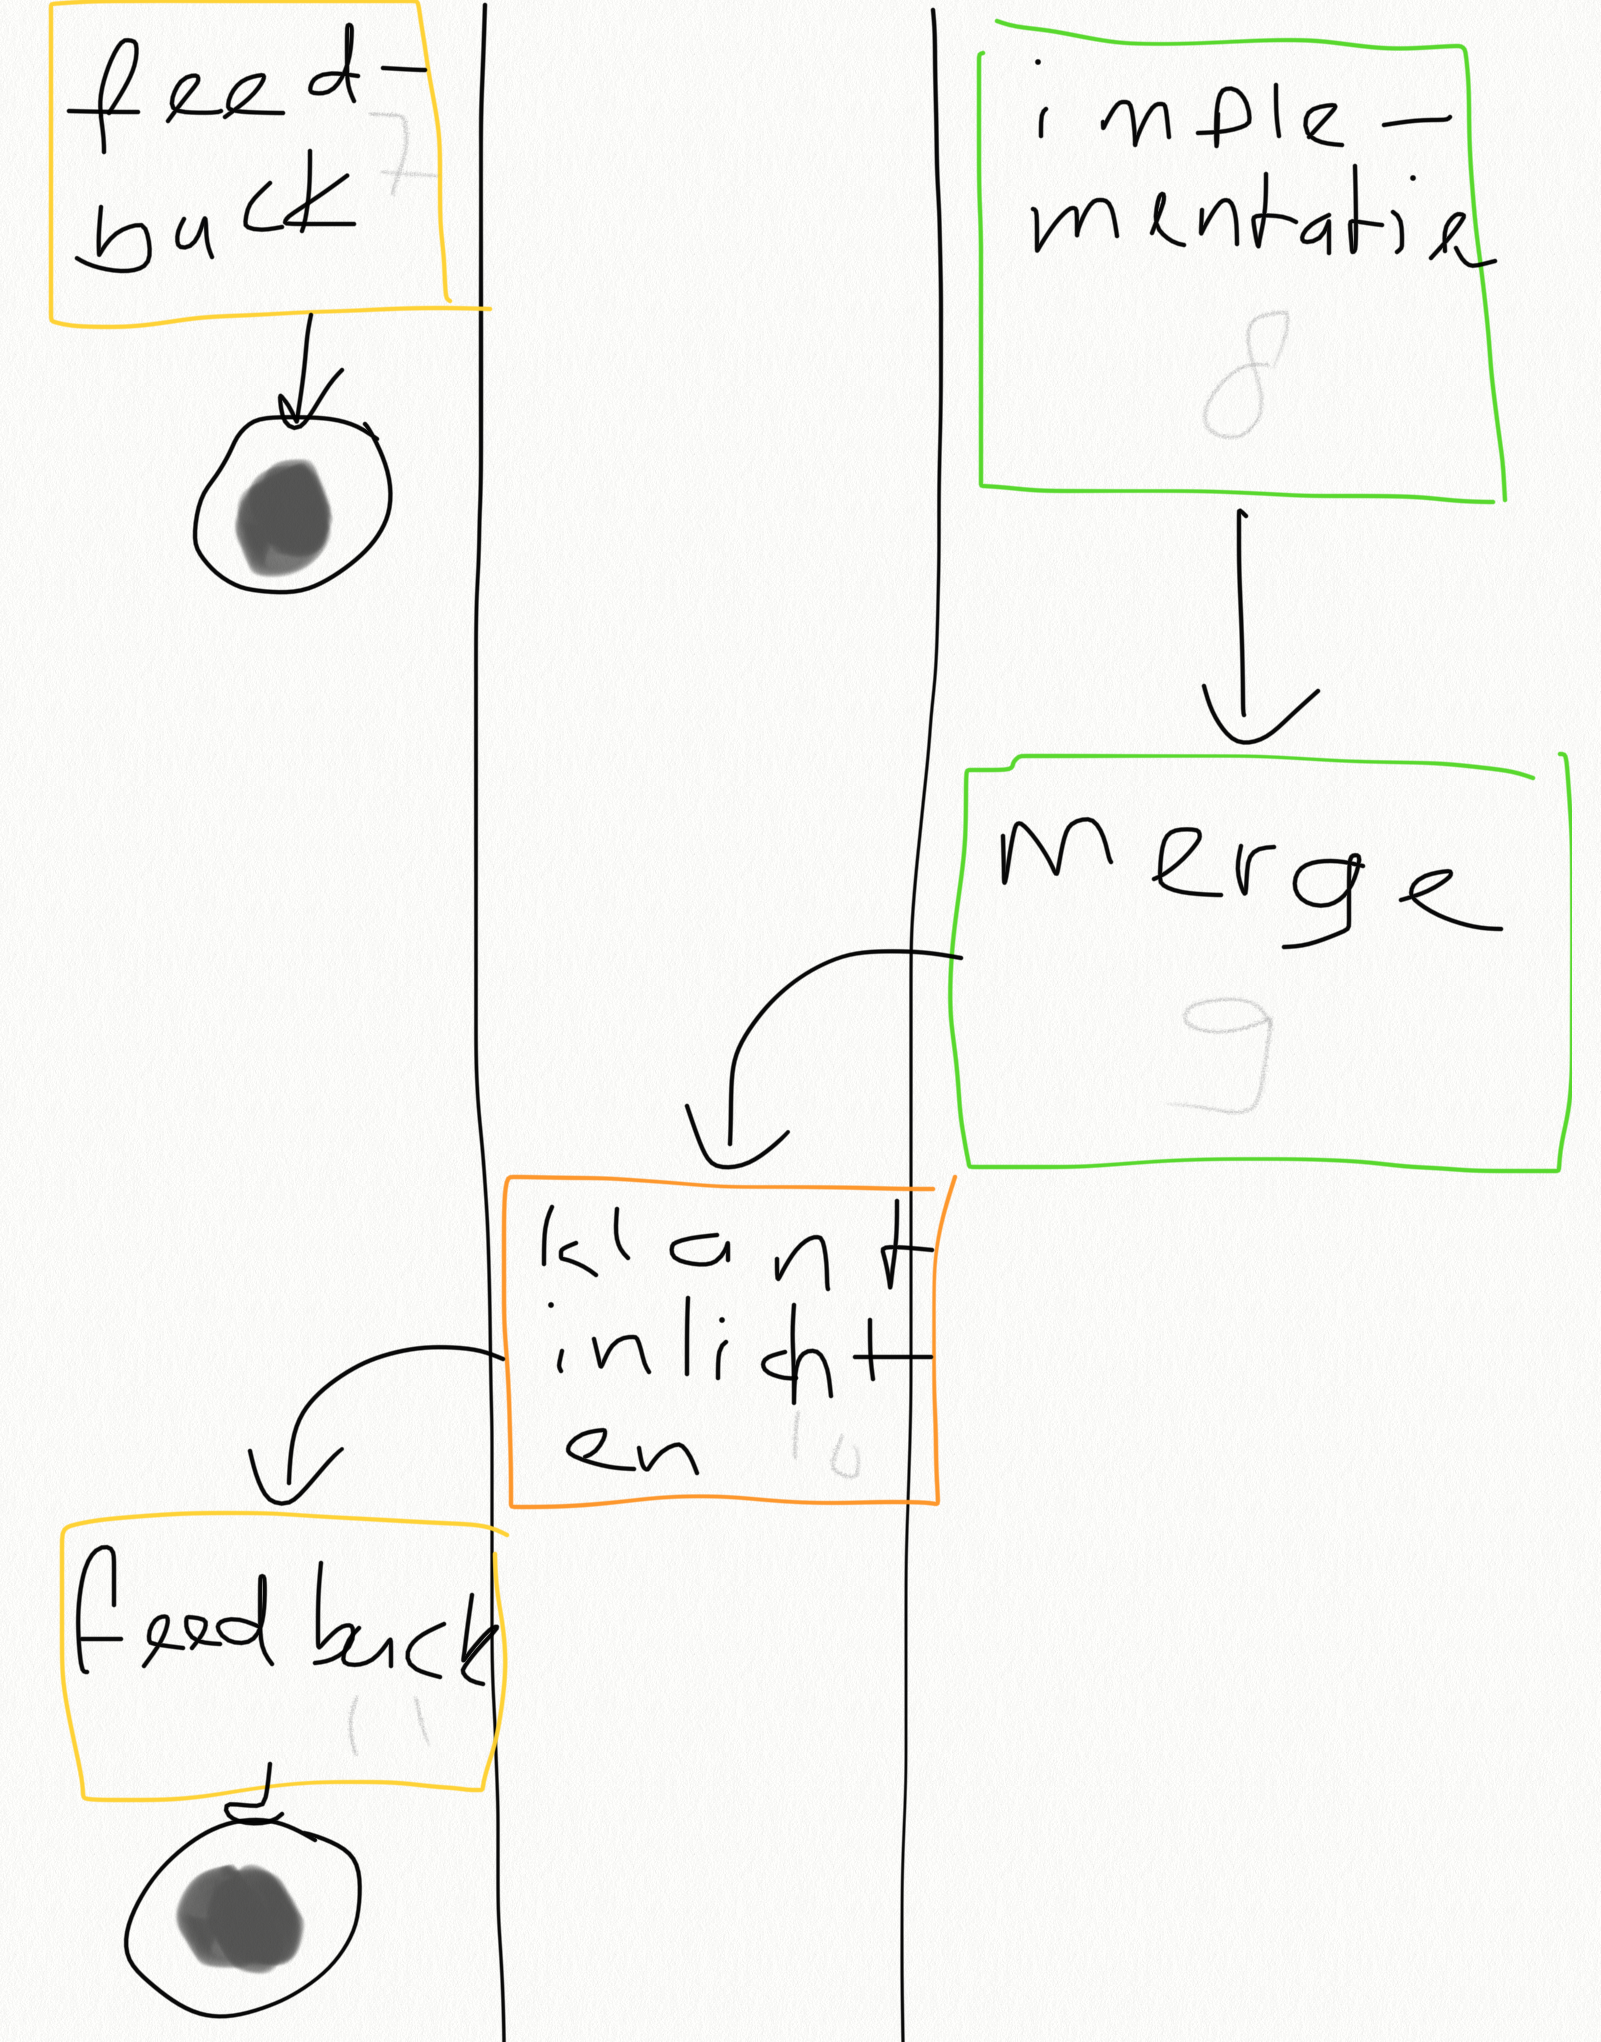 feed-
back
7
imple-
mentatie
8
Merge
9
klant
inlicht
en
10
feedback
11